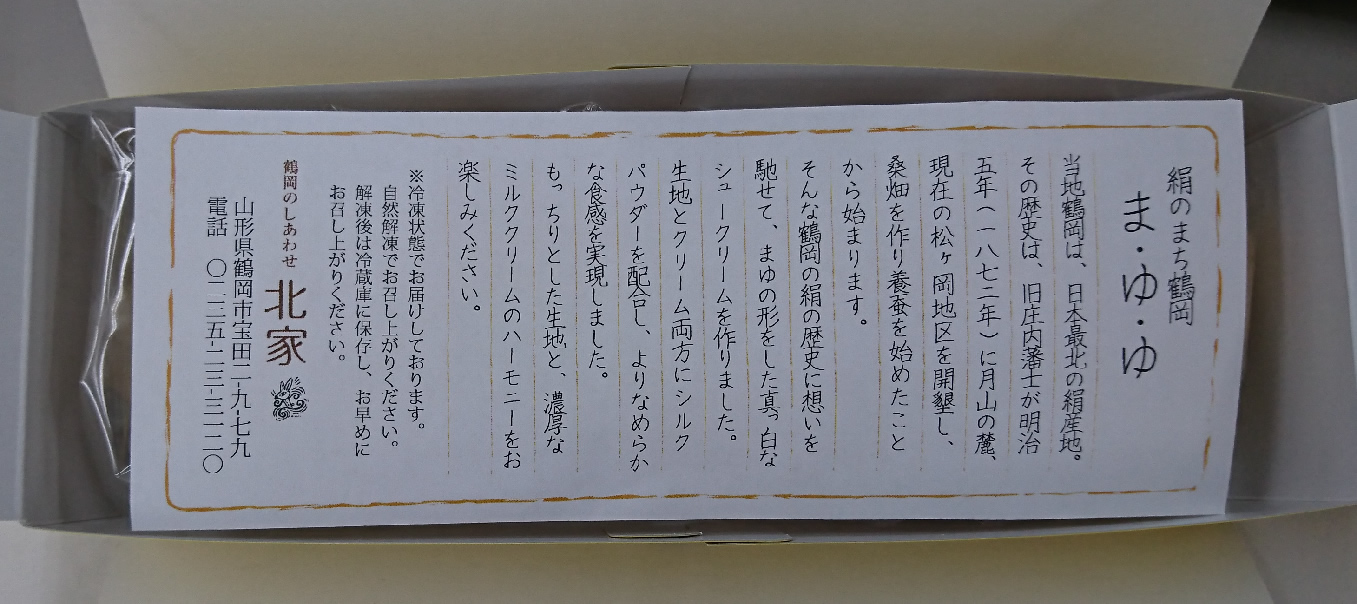 絹のまち鶴岡
ま・ゆ・ゆ
当地鶴岡は、日本最北の絹産地。
その歴史は、旧庄内藩士が明治
五年(一八七二年)に月山の麓、
現在の松ヶ岡地区を開墾し、
桑畑を作り養蚕を始めたこと
から始まります。
そんな鶴岡の絹の歴史に想いを
馳せて、まゆの形をした真っ白な
シュークリームを作りました。
生地とクリーム両方にシルク
パウダーを配合し、よりなめらか
な食感を実現しました。
もっちりとした生地と、濃厚な
ミルククリームのハーモニーをお
楽しみください。
※冷凍状態でお届けしております。
自然解凍でお召し上がりください。
解凍後は冷蔵庫に保存し、お早めに
お召し上がりください。
鶴岡のしあわせ 北家
山形県鶴岡市宝田二-九-七九
電話 〇二三五-二三-三一二〇